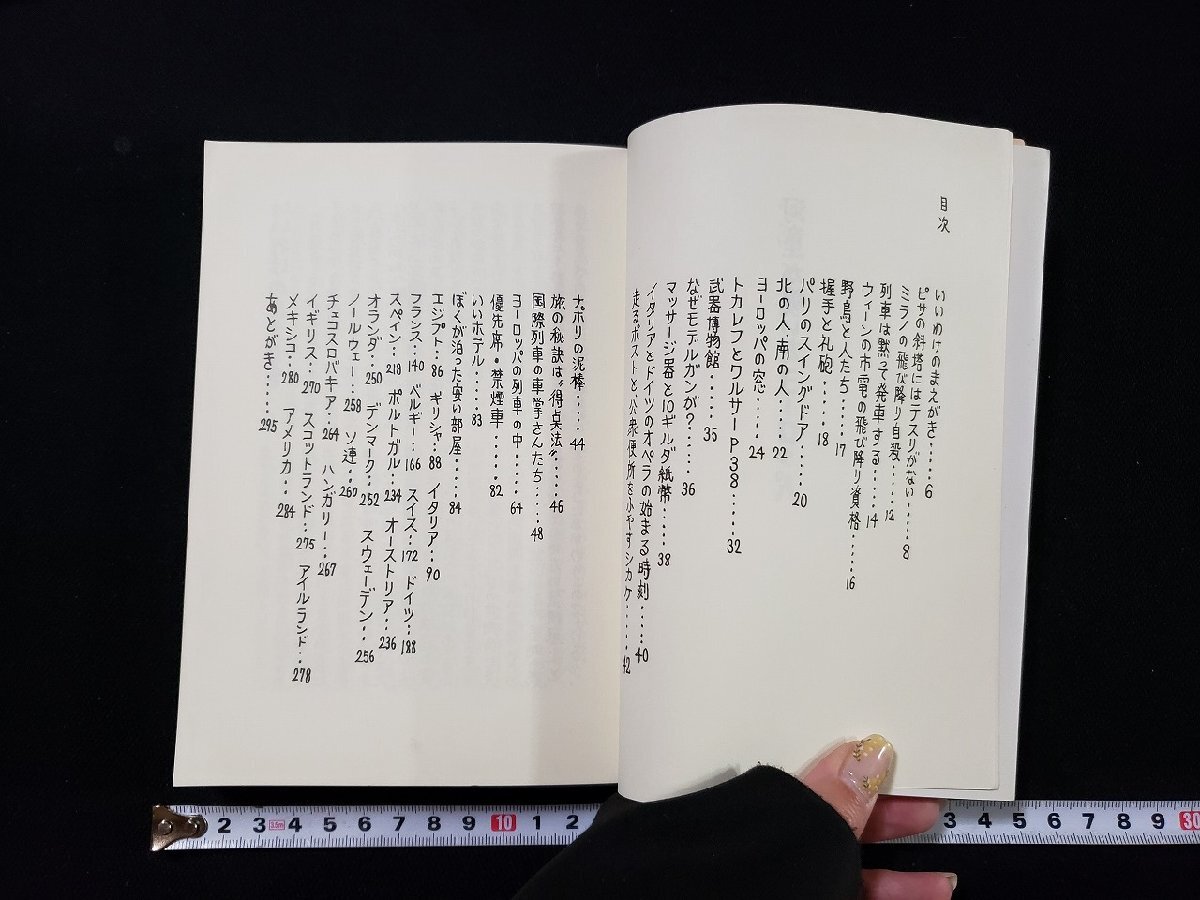 目次
いいわけのまえがき‥‥‥6
ピサの斜塔にはテスリがない‥‥‥8
ミラノの飛び降り自殺‥‥‥12
列車は黙って発車する‥‥‥14
ウィーンの市電の飛び降り資格‥‥‥16
野鳥と人たち‥‥‥17
握手と礼砲‥‥‥18
パリのスイングドア‥‥‥20
北の人、南の人‥‥‥22
ヨーロッパの窓‥‥‥24
トカレフとワルサーP38‥‥‥32
武器博物館‥‥‥35
なぜモデルガンが?‥‥‥36
マッサージ器と10ギルダ紙幣‥‥‥38
イタリアとドイツのオペラの始まる時刻‥‥‥40
走るポストと、公衆便所を小やすシカケ‥‥‥42
ナポリの泥棒‥‥‥44
旅の秘訣は“得点法”‥‥‥46
国際列車の車掌さんたち‥‥‥48
ヨーロッパの列車の中‥‥‥64
優先席・禁煙車‥‥‥82
いいホテル‥‥‥83
ぼくが泊った安い部屋‥‥‥84
エジプト‥86 ギリシャ‥88 イタリア‥90
フランス‥140 ベルギー‥166 スイス‥172 ドイツ‥188
スペイン‥218 ポルトガル‥234 オーストリア‥236
オランダ‥250 デンマーク‥252 スウェーデン‥256
ノールウェー‥258 ソ連‥260
チェコスロバキア‥264 ハンガリー‥267
イギリス‥270 スコットランド‥275 アイルランド‥278
メキシコ‥280 アメリカ‥284
あとがき‥‥‥295
2 3 3.5m 4 5 6 7 8 9 10 1 2
3 4 5 6 7 8 9 30